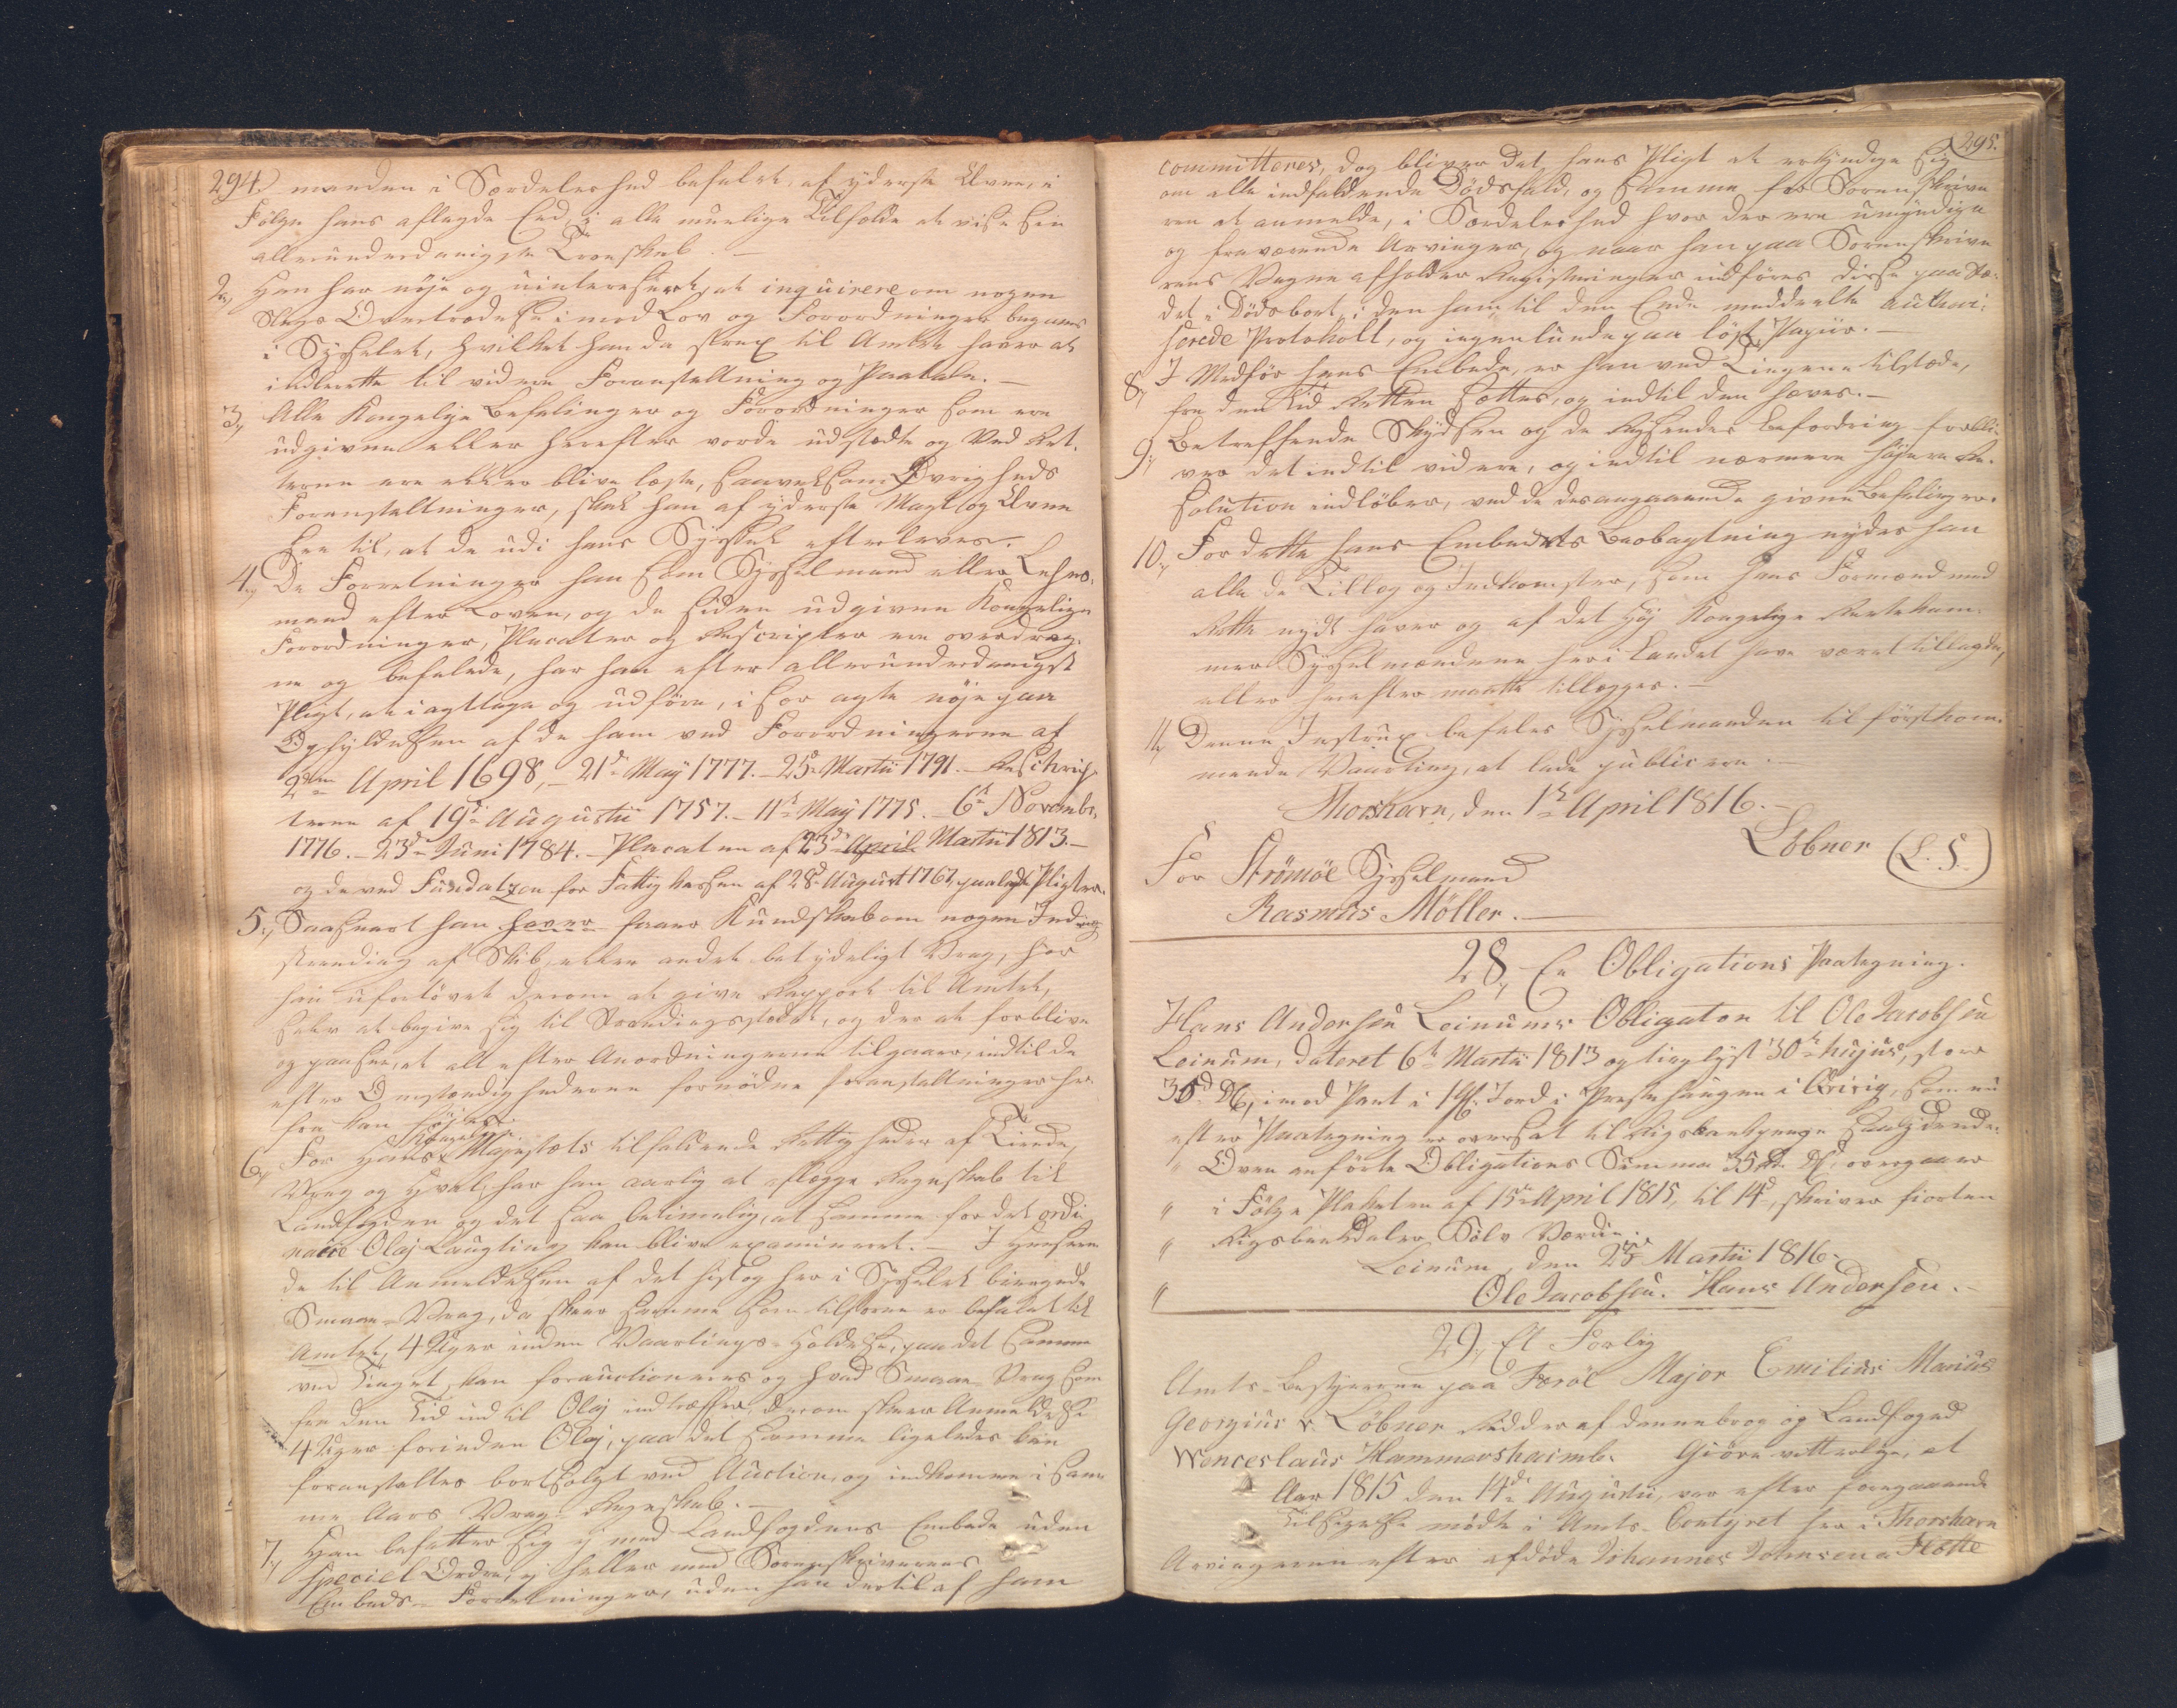 294.) manden i Særdeleshed befalet, af yderste Evne, i
Følge hans aflagde Eed, i alle muelige Tilfælde at vise sin
allerunderdanigste Troeskab. —
2,) Han har nøje og uinteresseret, at inquirere om nogen
Slags Overtrædelse imod Lov og Forordninger begaaes
i Sysselet, hvilket han da strax til Amtet haver at
indberette til videre Foranstaltning og Paatale. —
3,) Alle Kongelige Befalinger og Forordninger som ere
udgivne eller herefter vorde udstædte og ved Ret-
terne ere eller blive læste, saavelsom Øvrigheds
Foranstaltninger, skal han af yderste Magt og Evne
see til, at de udi hans Syssel efterleves. —
4,) De Forretninger han som Sysselmand eller Lehns-
mand efter Loven, og de siden udgivne Kongelige
Forordninger, Placater og Rescripter ere overdrag-
ne og befalede, har han efter allerunderdanigst
Pligt, at iagttage og udføre, i sær agte nøje paa
Opfyldelsen af de ham ved Forordningerne af
2den April 1698, – 21de May 1777. – 25de Martii 1791. – Reschrip-
terne af 19de Augustii 1757. – 11te May 1775. – 6te Novembr.
1776. – 23de Juni 1784. – Placaten af 23de April Martii 1813. –
og de ved Fundatzen for Fattig Kassen af 28de August 1767, paalagte Pligter.
5,) Saasnart han haver faaer Kundskab om nogen Ind-
stranding af Skib, eller andet betydeligt Vrag, har
han ufortøvet derom at give Rapport til Amtet,
selv at begive sig til Strandingsstedet, og der at forblive
og paasee, at alt efter Anordningerne tilgaaer, indtil de
efter Omstændighederne fornødne Foranstaltninger her-
fra kan føjes.
6,) For Hans Kongelige Majestæts tilfaldende Rettigheder af Tiende,
Vrag og Hval, har han aarlig at aflægge Regnskab til
Landfogden og det saa betimelig, at samme for det ordi-
naire Olaj Laugting kan blive examineret. – I Henseen-
de til Anmeldelsen af det hist og her i Sysselet biergede
Smaae-Vrag, da skeer samme som tilforne er befalet til
Amtet, 4 Uger inden Vaartings-Holdelse, paa det samme
ved Tinget, kan forauctioneres og hvad Smaae-Vrag som
fra den Tid ind til Olaj indtræffer, derom skeer Anmeldelse
4 Uger forinden Olaj, paa det samme ligeledes kan
foranstaltes bortsolgt ved Auction, og indkomme i sam-
me Aars Vrag-Regnskab. —
7,) Han befatter sig ej med Landfogdens Embede uden
speciel Ordre, ej heller med Sorenskriverens
Embeds-Forretninger, uden han dertil af ham
295.
committeres, dog bliver det hans Pligt at erkyndige sig
om alle indfaldende Dödsfald, og samme for Sorenskrive-
ren at anmelde, i Særdeleshed hvor der ere umyndige
og fraværende Arvinger, og naar han paa Sorenskrive-
rens Vegne afholder Registeringer indføres disse paa Ste-
det i Dödsboet, i den ham til den Ende meddeelte autori-
serede Protokoll, og ingenlunde paa løst Papiir. —
8,) I Medfør hans Embede, er han ved Tingene tilstæde,
fra den Tid Retten sættes, og indtil den hæves. —
9,) Betreffende Skydsen og de Reisendes Befordring forbli-
ver det indtil videre, og indtil nærmere høiere Re-
solution indløber, ved de desangaaende givne Befalinger.
10,) For dette hans Embedets Beobagtning nyder han
alle de Tillæg og Indkomster, som hans Formænd med
Rette nydt haver og af det Høj Kongelige Rentekam-
mer Sysselmændene her i Landet have været tillagde,
eller herefter maatte tillægges. —
11,) Denne Instrux befales Sysselmanden til førstkom-
mende Vaarting, at lade publicere. —
Thorshavn, den 1te April 1816. —
Löbner (L. S.)
For Strömöe Sysselmand
Rasmus Möller. —
28,) En Obligations Paategning.
Hans Andersen Leinums Obligation til Ole Jacobsen
Leinum, dateret 6te Martii 1813 og tinglyst 30te hujus, stor
35 d. DC, imod Pant i 1 Gl. Jord i Præstehaugen i Qvivig, som nu
efter Paategning er oversat til Rigsbankpenge saalydende:
" Oven anførte Obligations Summa 35 Rd. DC, overgaaer
" i Følge Plakaten af 15de April 1815, til 14d, skriver fiorten
" Rigsbankdaler Sølv Værdie.
Leinum, den 25de Martii 1816.
" Ole Jacobsen. Hans Andersen. —
29,) Et Forlig
Amts-Bestyrerne paa Færøe Major Emilius Marius
Georgius v. Löbner Ridder af Dannebrog og Landfoged
Wenceslaus Hammershaimb. Giøre vitterligt, at
Aar 1815 den 14de Augustii, var efter foregaaende
Tilsigelse mødte i Amts-Contoiret her i Thorshavn
Arvingerne efter afdøde Johannes Joensen a Flætte